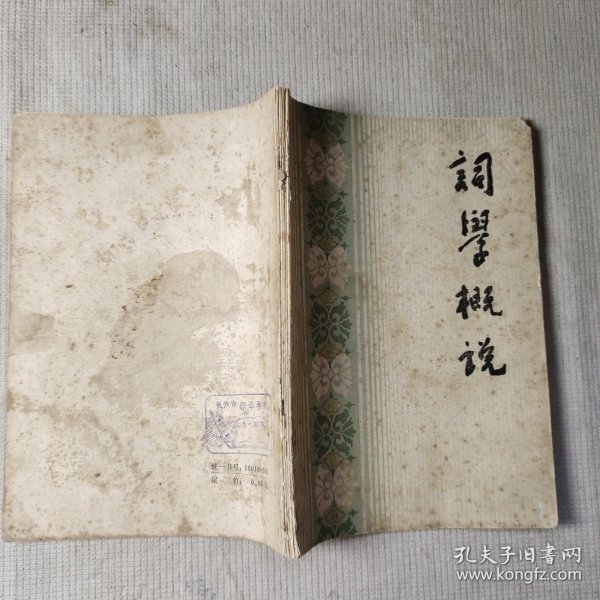 詞學概説
长沙市新华书店
统一书号：10018·
定 价：0.45元
孔夫子旧书网
www.kongfz.com